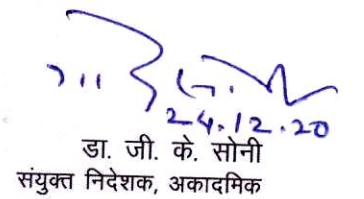 24.12.20
डा. जी. के. सोनी
संयुक्त निदेशक, अकादमिक